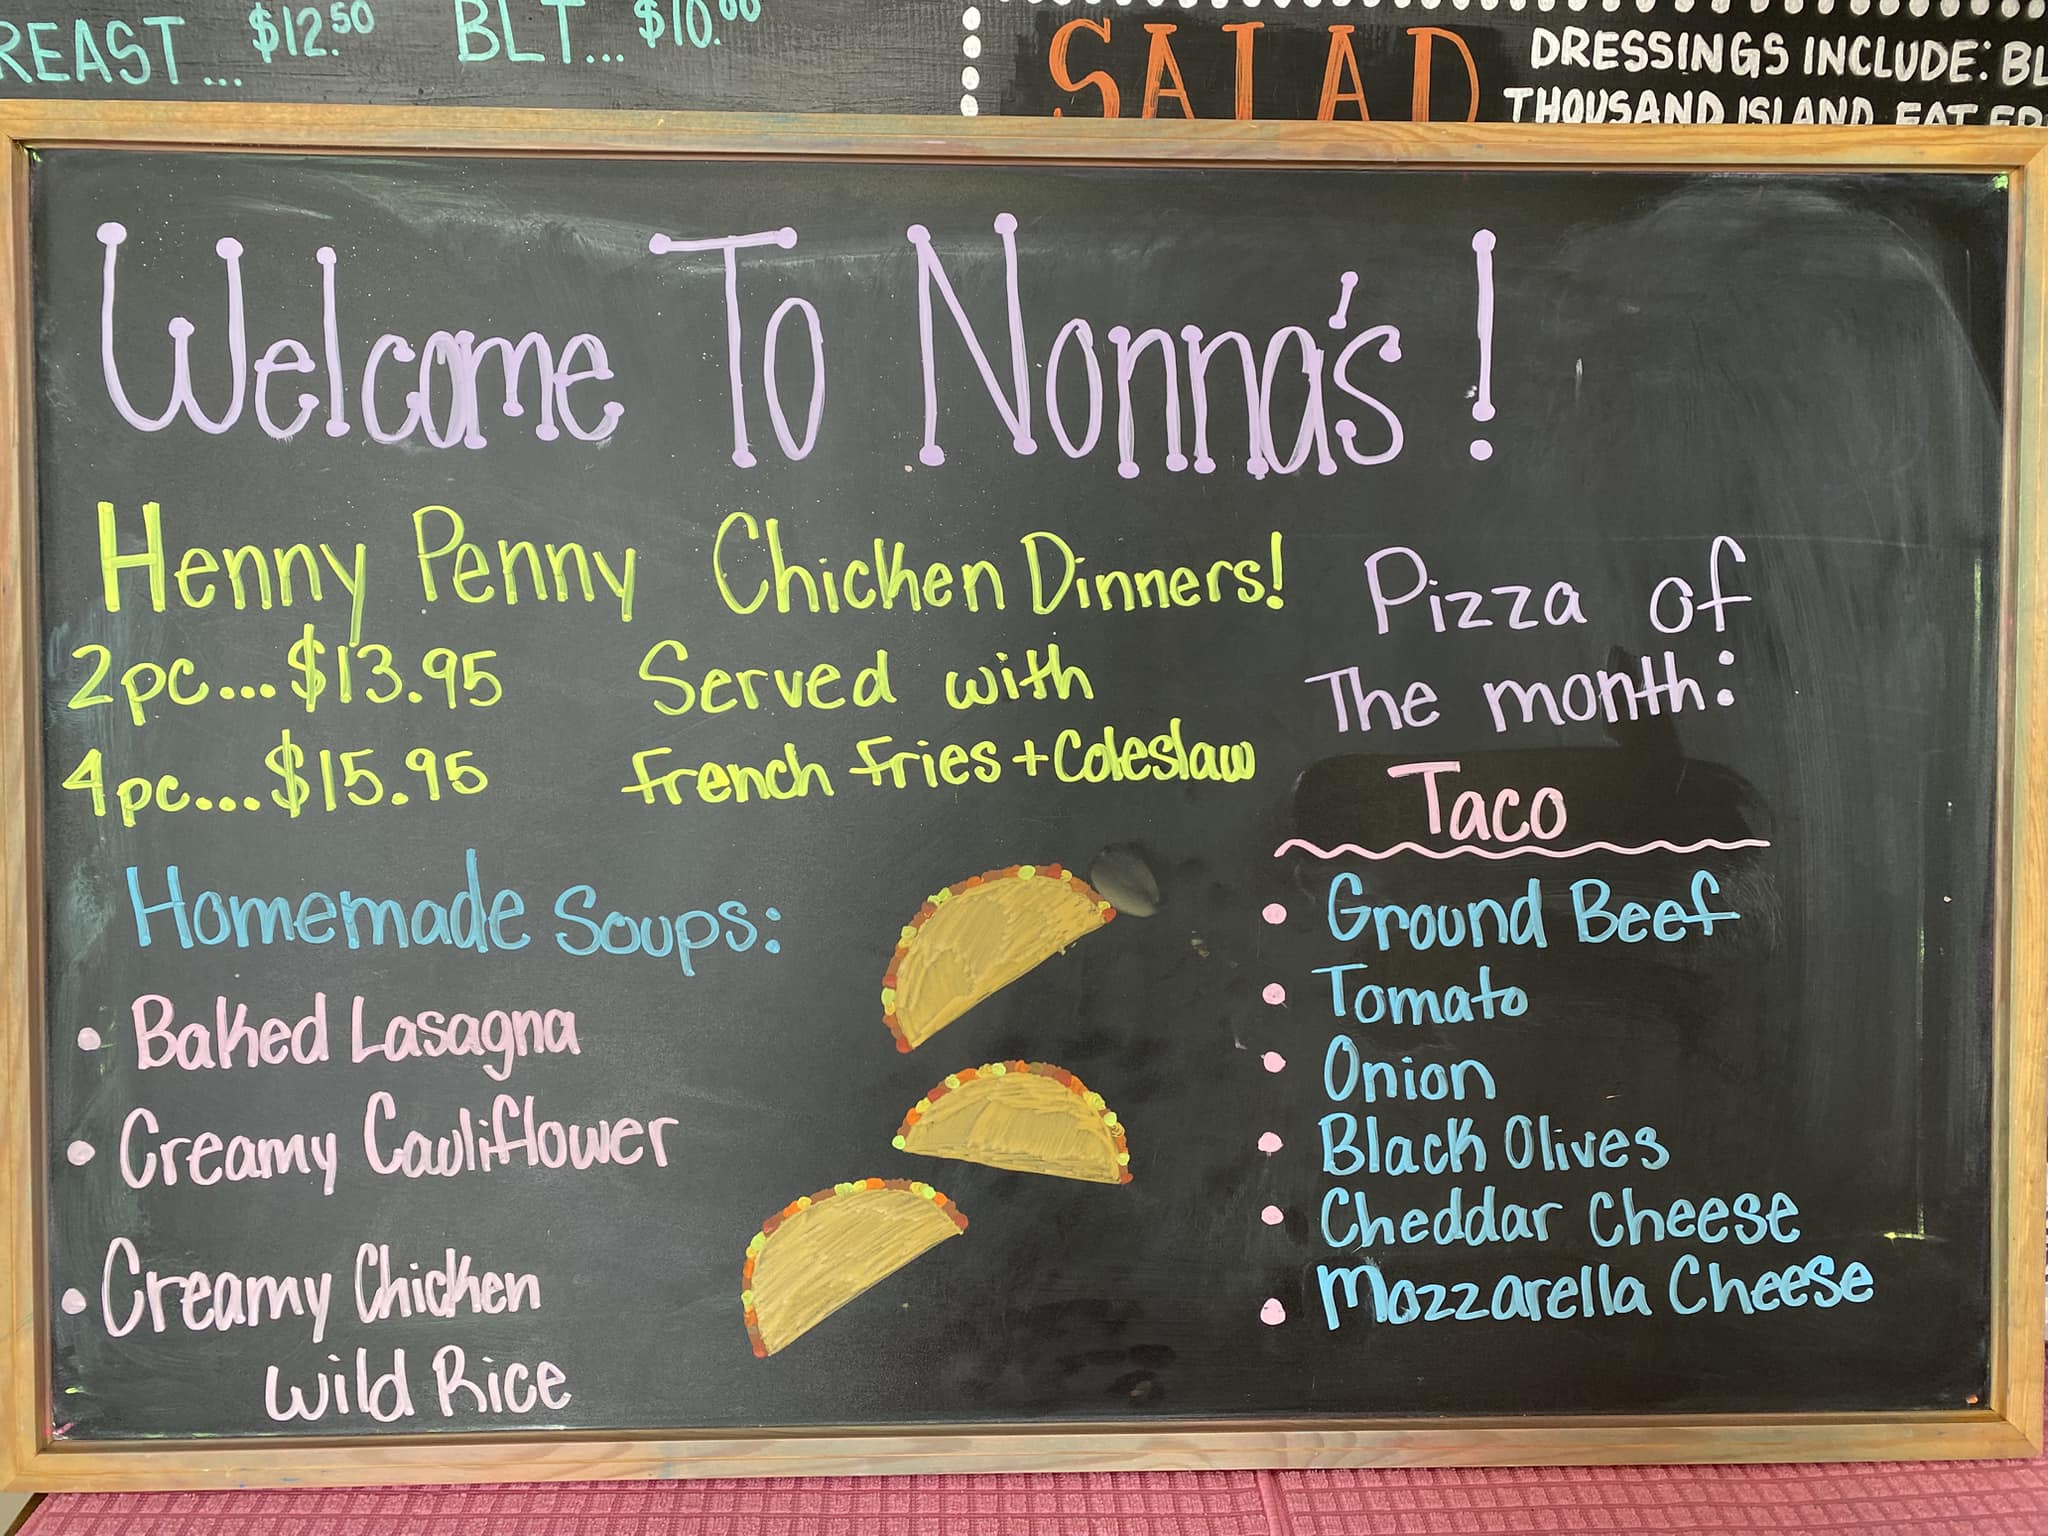 REAST... $12.50 BLT... $10.00
SALAD
DRESSINGS INCLUDE:
THOUSAND ISLAND,
Welcome To Nonna's!
Henny Penny Chicken Dinners!
2pc...$13.95 Served with
4pc....$15.95 french fries + Coleslaw
Homemade Soups:
• Baked Lasagna
• Creamy Cauliflower
• Creamy Chicken
Wild Rice
Pizza of
The month:
Taco
• Ground Beef
• Tomato
• Onion
• Black Olives
• Cheddar Cheese
• Mozzarella Cheese